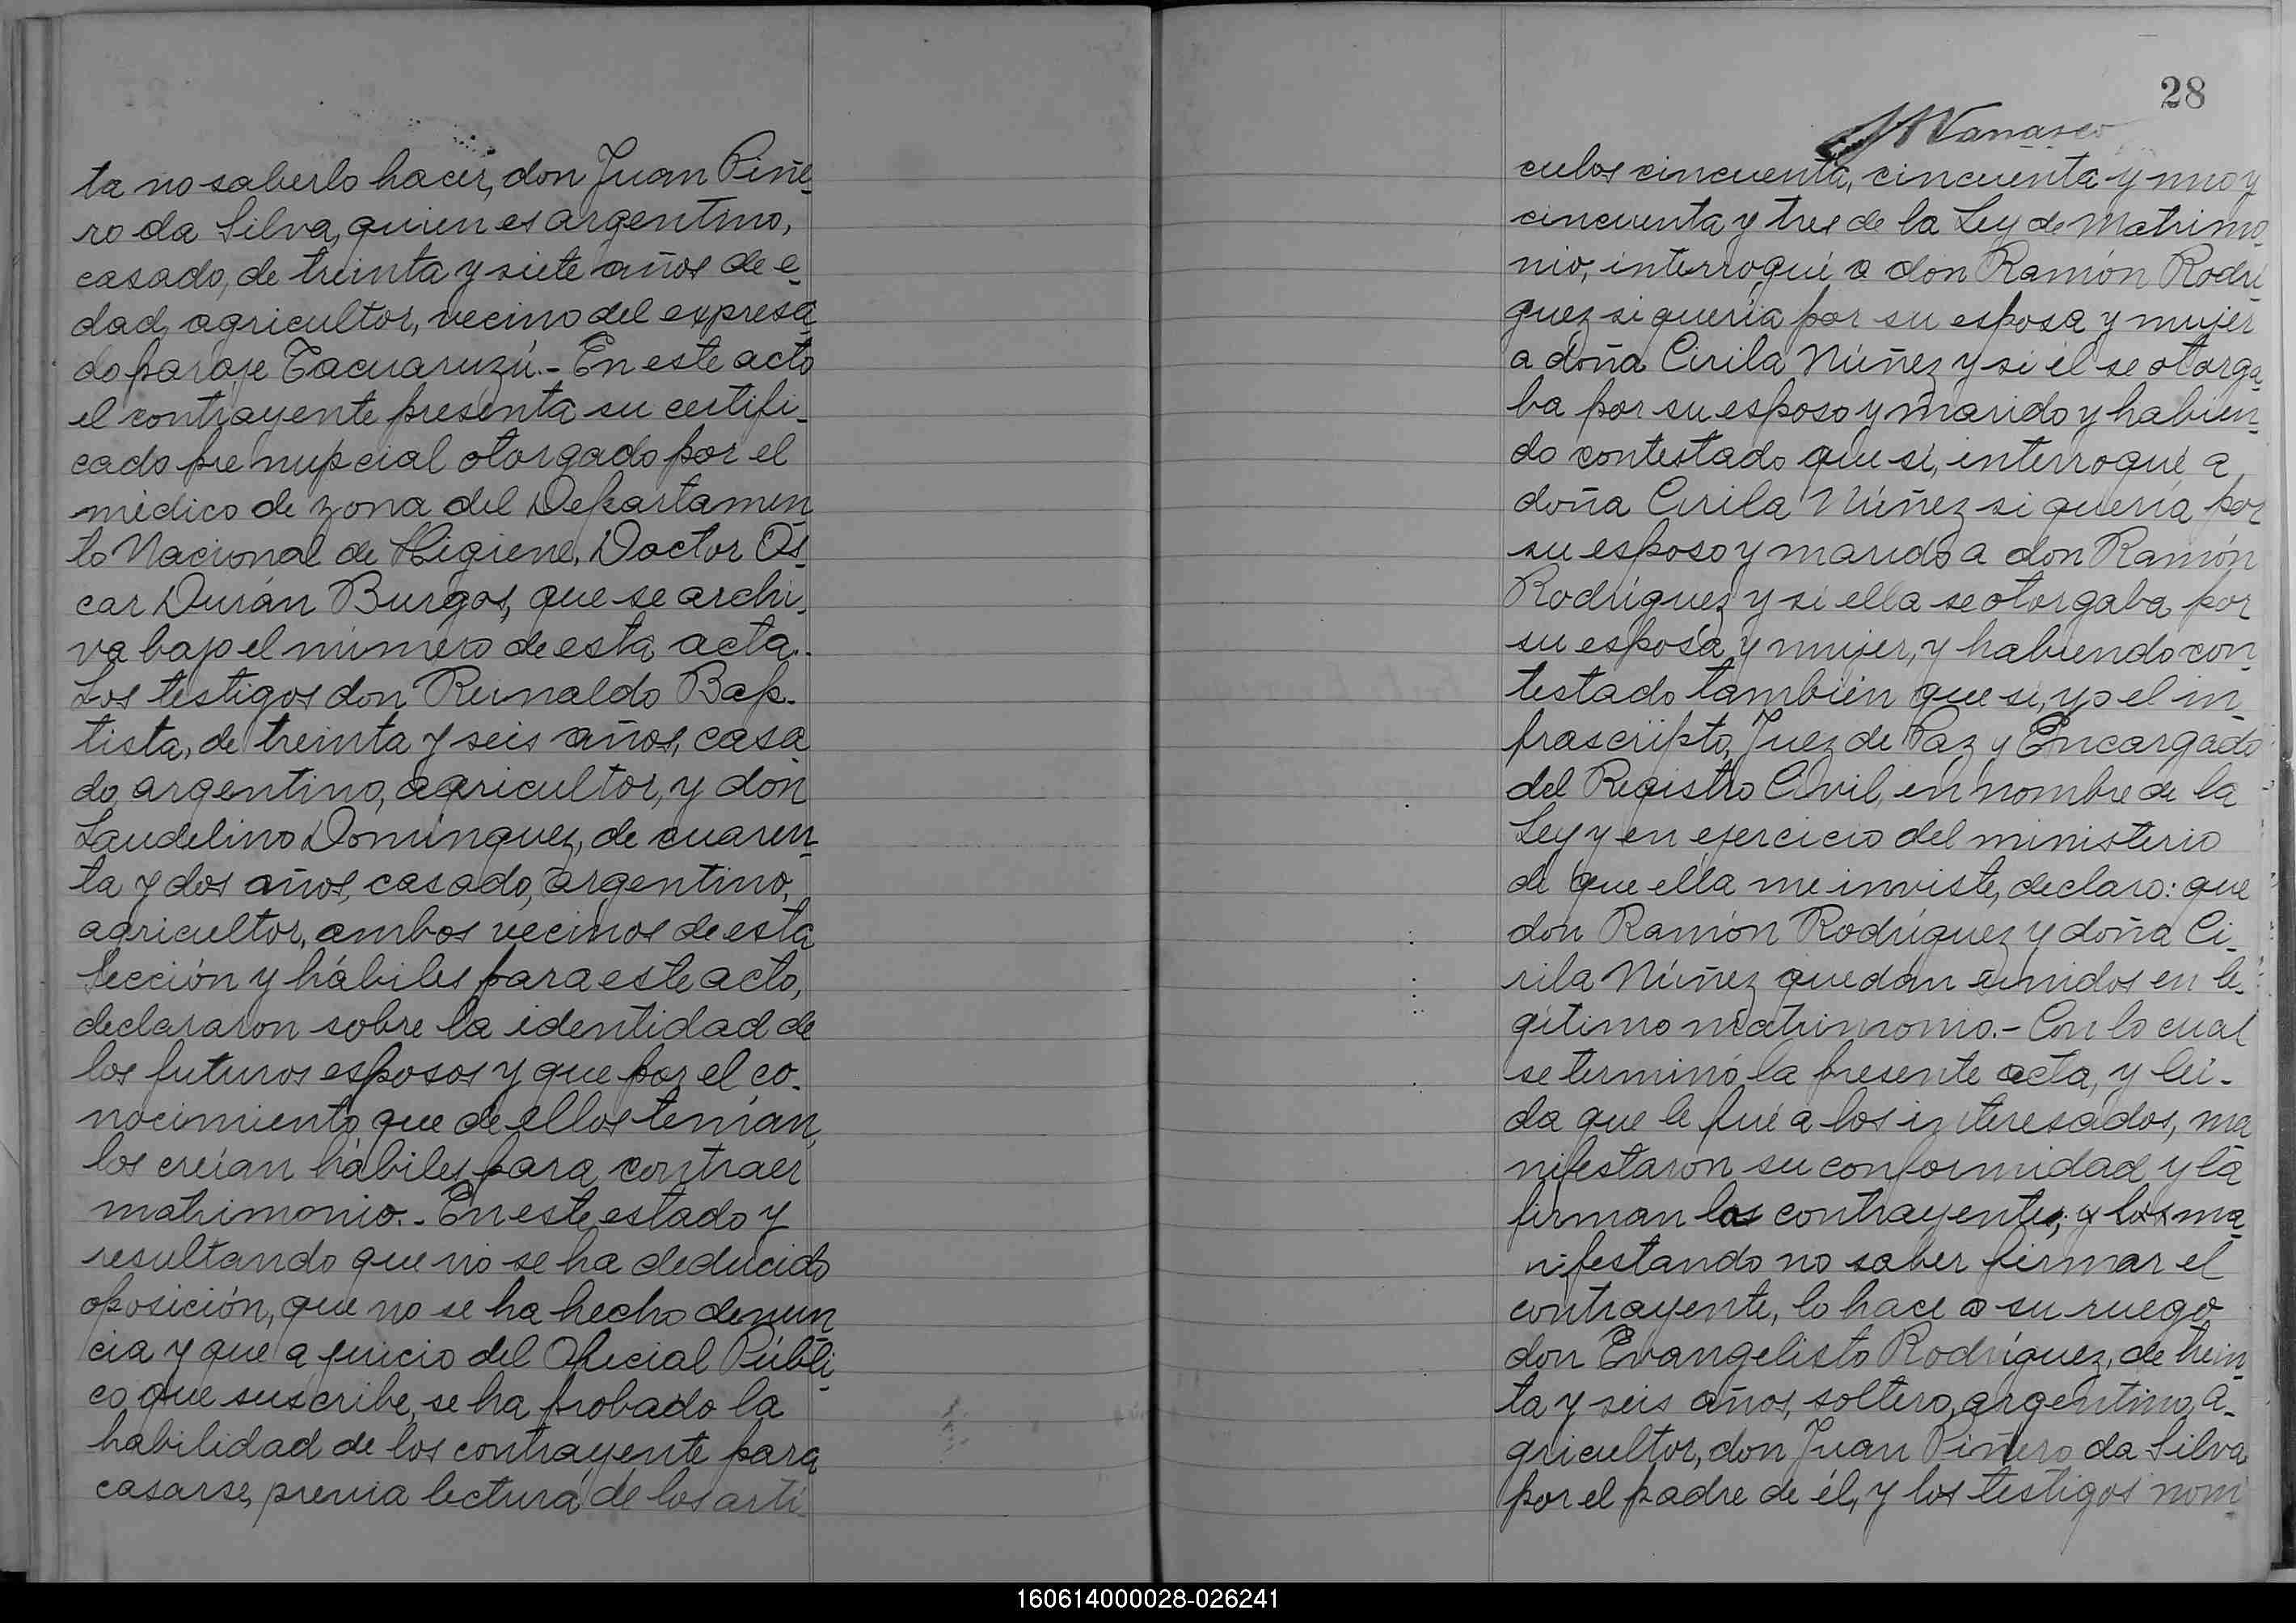 ta no saberlo hacer, don Juan Piñe-
ro da Silva, quien es argentino,
casado, de treinta y siete años de e-
dad, agricultor, vecino del expresa-
do paraje Tacuaruzú.- En este acto
el contrayente presenta su certifi-
cado pre nupcial otorgado por el
médico de zona del Departamen-
to Nacional de Higiene, Doctor Os-
car Durán Burgos, que se archi-
va bajo el número de esta acta..
Los testigos don Reinaldo Bap-
tista, de treinta y seis años, casa-
do, argentino, agricultor, y don
Laudelino Dominguez, de cuaren-
ta y dos años, casado, argentino,
agricultor, ambos vecinos de esta
Sección y hábiles para este acto,
declararon sobre la identidad de
los futuros esposos y que por el co-
nocimiento que de ellos tenían,
los creían hábiles para contraer
matrimonio.- En este estado y
resultando que no se ha deducido
oposición, que no se ha hecho denun-
cia y que a juicio del Oficial Públi-
co que suscribe, se ha probado la
habilidad de los contrayente para
casarse, previa lectura de los arti-
28
culos cincuenta, cincuenta y uno y
cincuenta y tres de la Ley de Matrimo-
nio, interrogué a don Ramón Rodrí-
guez si quería por su esposa y mujer
a doña Cirila Núñez y si él se otorga-
ba por su esposo y marido y habien-
do contestado que sí, interrogué a
doña Cirila Núñez si quería por
su esposo y marido a don Ramón
Rodríguez y si ella se otorgaba por
su esposa y mujer, y habiendo con-
testado también que si, yo el in-
frascripto, Juez de Paz y Encargado
del Registro Civil, en nombre de la
Ley y en ejercicio del ministerio
de que ella me inviste, declaro: que
don Ramón Rodríguez y doña Ci-
rila Núñez quedan unidos en le-
gítimo matrimonio.- Con lo cual
se terminó la presente acta, y leí-
da que le fué a los interesados, ma-
nifestaron su conformidad y la
firman los contrayentes; y los ma-
nifestando no saber firmar el
contrayente, lo hace a su ruego
don Evangelisto Rodríguez, de trein-
ta y seis años, soltero, argentino, a-
gricultor, don Juan Piñero da Silva
por el padre de él, y los testigos nom-
160614000028-026241